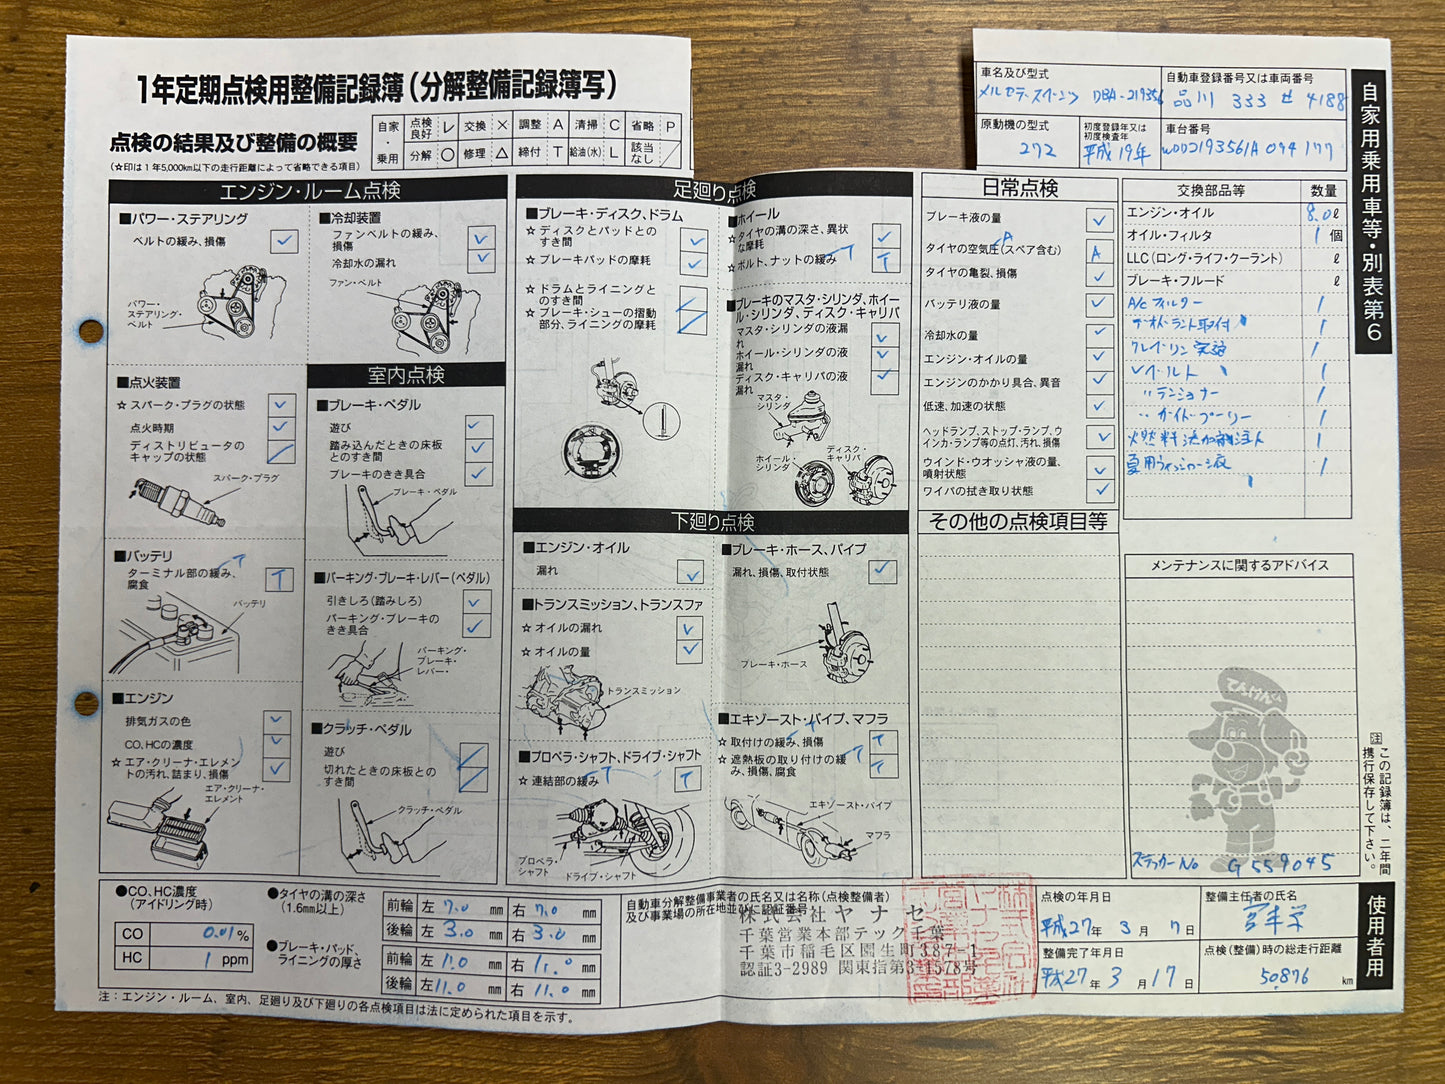 1年定期点検用整備記録簿(分解整備記録簿写)
点検の結果及び整備の概要
(☆印は1年5,000km以下の走行距離によって省略できる項目)
自家・乗用
点検良好 レ 交換 × 調整 A 清掃 C 省略 P
分解 ○ 修理 △ 締付 T 給油(水) L 該当なし ／
車名及び型式
DBA-219356
自動車登録番号又は車両番号
品川 333 せ 4188
原動機の型式
272
初度登録年又は初度検査年
平成19年
車台番号
WDD2193561A094177
自家用乗用車等・別表第6
エンジン・ルーム点検
■パワー・ステアリング
ベルトの緩み、損傷
パワー・ステアリング・ベルト
■点火装置
☆スパーク・プラグの状態
点火時期
ディストリビュータのキャップの状態
スパーク・プラグ
■バッテリ
ターミナル部の緩み、腐食 T
バッテリ
■エンジン
排気ガスの色
CO、HCの濃度
☆エア・クリーナ・エレメントの汚れ、詰まり、損傷
エア・クリーナ・エレメント
■冷却装置
ファンベルトの緩み、損傷
冷却水の漏れ
ファン・ベルト
室内点検
■ブレーキ・ペダル
遊び
踏み込んだときの床板とのすき間
ブレーキのきき具合
ブレーキ・ペダル
■パーキング・ブレーキ・レバー(ペダル)
引きしろ(踏みしろ)
パーキング・ブレーキのきき具合
パーキング・ブレーキ・レバー・
■クラッチ・ペダル
遊び
切れたときの床板とのすき間
クラッチ・ペダル
足廻り点検
■ブレーキ・ディスク、ドラム
☆ディスクとパッドとのすき間
☆ブレーキパッドの摩耗
☆ドラムとライニングとのすき間
☆ブレーキ・シューの摺動部分、ライニングの摩耗
■ホイール
☆タイヤの溝の深さ、異状な摩耗
☆ボルト、ナットの緩み T
■ブレーキのマスタ・シリンダ、ホイール・シリンダ、ディスク・キャリパ
マスタ・シリンダの液漏れ
ホイール・シリンダの液漏れ
ディスク・キャリパの液漏れ
マスタ・シリンダ
ホイール・シリンダ
ディスク・キャリパ
下廻り点検
■エンジン・オイル
漏れ
■トランスミッション、トランスファ
☆オイルの漏れ
☆オイルの量
トランスミッション
■プロペラ・シャフト、ドライブ・シャフト
☆連結部の緩み T
プロペラ・シャフト
ドライブ・シャフト
■ブレーキ・ホース、パイプ
漏れ、損傷、取付状態
ブレーキ・ホース
■エキゾースト・パイプ、マフラ
☆取付けの緩み、損傷 T
☆遮熱板の取り付けの緩み、損傷、腐食 T
エキゾースト・パイプ
マフラ
日常点検
ブレーキ液の量
タイヤの空気圧(スペア含む) A
タイヤの亀裂、損傷
バッテリ液の量
冷却水の量
エンジン・オイルの量
エンジンのかかり具合、異音
低速、加速の状態
ヘッドランプ、ストップ・ランプ、ウインカ・ランプ等の点灯、汚れ、損傷
ウインド・ウオッシャ液の量、噴射状態
ワイパの拭き取り状態
その他の点検項目等
交換部品等 数量
エンジン・オイル 8.0ℓ
オイル・フィルタ 1個
LLC(ロング・ライフ・クーラント) ℓ
ブレーキ・フルード ℓ
A/Cフィルター 1
取付 1
クレベリン 1
Vベルト 1
〃テンショナー 1
〃ガイドプーリー 1
燃料添加剤注入 1
夏用ウォッシャー液 1
メンテナンスに関するアドバイス
てんけんくん
ステッカーNo G559045
注 この記録簿は、二年間携行保存して下さい。
使用者用
●CO、HC濃度(アイドリング時)
CO 0.01%
HC 1 ppm
●タイヤの溝の深さ(1.6mm以上)
前輪 左 7.0 mm 右 7.0 mm
後輪 左 3.0 mm 右 3.0 mm
●ブレーキ・パッド、ライニングの厚さ
前輪 左 11.0 mm 右 11.0 mm
後輪 左 11.0 mm 右 11.0 mm
自動車分解整備事業者の氏名又は名称(点検整備者)及び事業場の所在地並びに認証番号
株式会社ヤナセ
千葉営業本部テック千葉
千葉市稲毛区園生町387-1
認証3-2989 関東指第3-1578号
点検の年月日
平成27年3月7日
整備完了年月日
平成27年3月17日
整備主任者の氏名
点検(整備)時の総走行距離
50,876 km
注:エンジン・ルーム、室内、足廻り及び下廻りの各点検項目は法に定められた項目を示す。